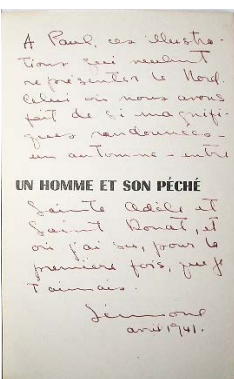 A Paul, ces illustra-
tions qui veulent
représenter le Nord.
Celui où nous avons
fait de si magnifi-
ques randonnées -
un automne - entre
UN HOMME ET SON PÉCHÉ
Sainte Adèle et
Saint Donat, et
où j'ai su, pour la
première fois, que je
t'aimais.
Simone
avril 1941.